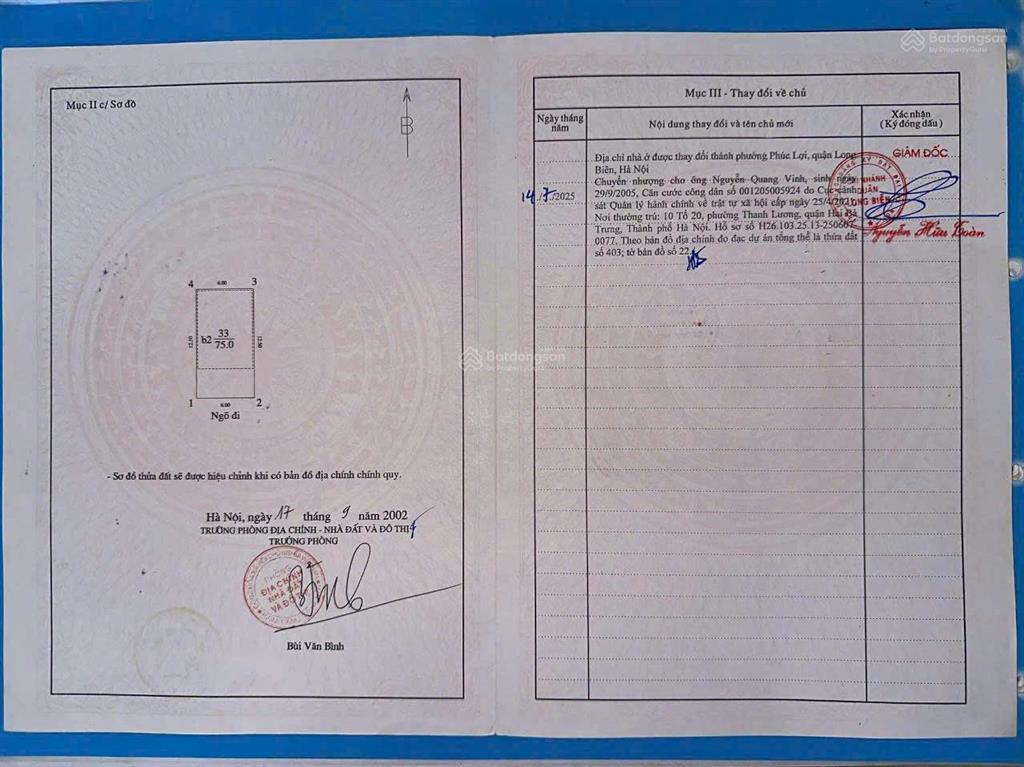 Batdongsan
by PropertyGuru
Mục II c/ Sơ đồ
B
4 6.00 3
12.50
b2 33
75.0
12.50
1 6.00 2
Ngõ đi
- Sơ đồ thửa đất sẽ được hiệu chỉnh khi có bản đồ địa chính chính quy.
Hà Nội, ngày 17 tháng 9 năm 2002
TRƯỞNG PHÒNG ĐỊA CHÍNH - NHÀ ĐẤT VÀ ĐÔ THỊ
TRƯỞNG PHÒNG
PHÒNG
ĐỊA CHÍNH
NHÀ ĐẤT
VÀ ĐÔ THỊ
Bùi Văn Bình
Batdongsan
by PropertyGuru
Mục III - Thay đổi về chủ
Ngày tháng năm
Nội dung thay đổi và tên chủ mới
Xác nhận
(Ký đóng dấu)
14/7/2025
Địa chỉ nhà ở được thay đổi thành phường Phúc Lợi, quận Long
Biên, Hà Nội
Chuyển nhượng cho ông Nguyễn Quang Vinh, sinh ngày
29/9/2005, Căn cước công dân số 001205005924 do Cục cảnh
sát Quản lý hành chính về trật tự xã hội cấp ngày 25/4/2021,
Nơi thường trú: 10 Tổ 20, phường Thanh Lương, quận Hai Bà
Trưng, Thành phố Hà Nội. Hồ sơ số H26.103.25.13-250607-
0077. Theo bản đồ địa chính đo đạc dự án tổng thể là thửa đất
số 403; tờ bản đồ số 22.
GIÁM ĐỐC
CHI NHÁNH
QUẬN
LONG BIÊN
Nguyễn Hữu Toàn